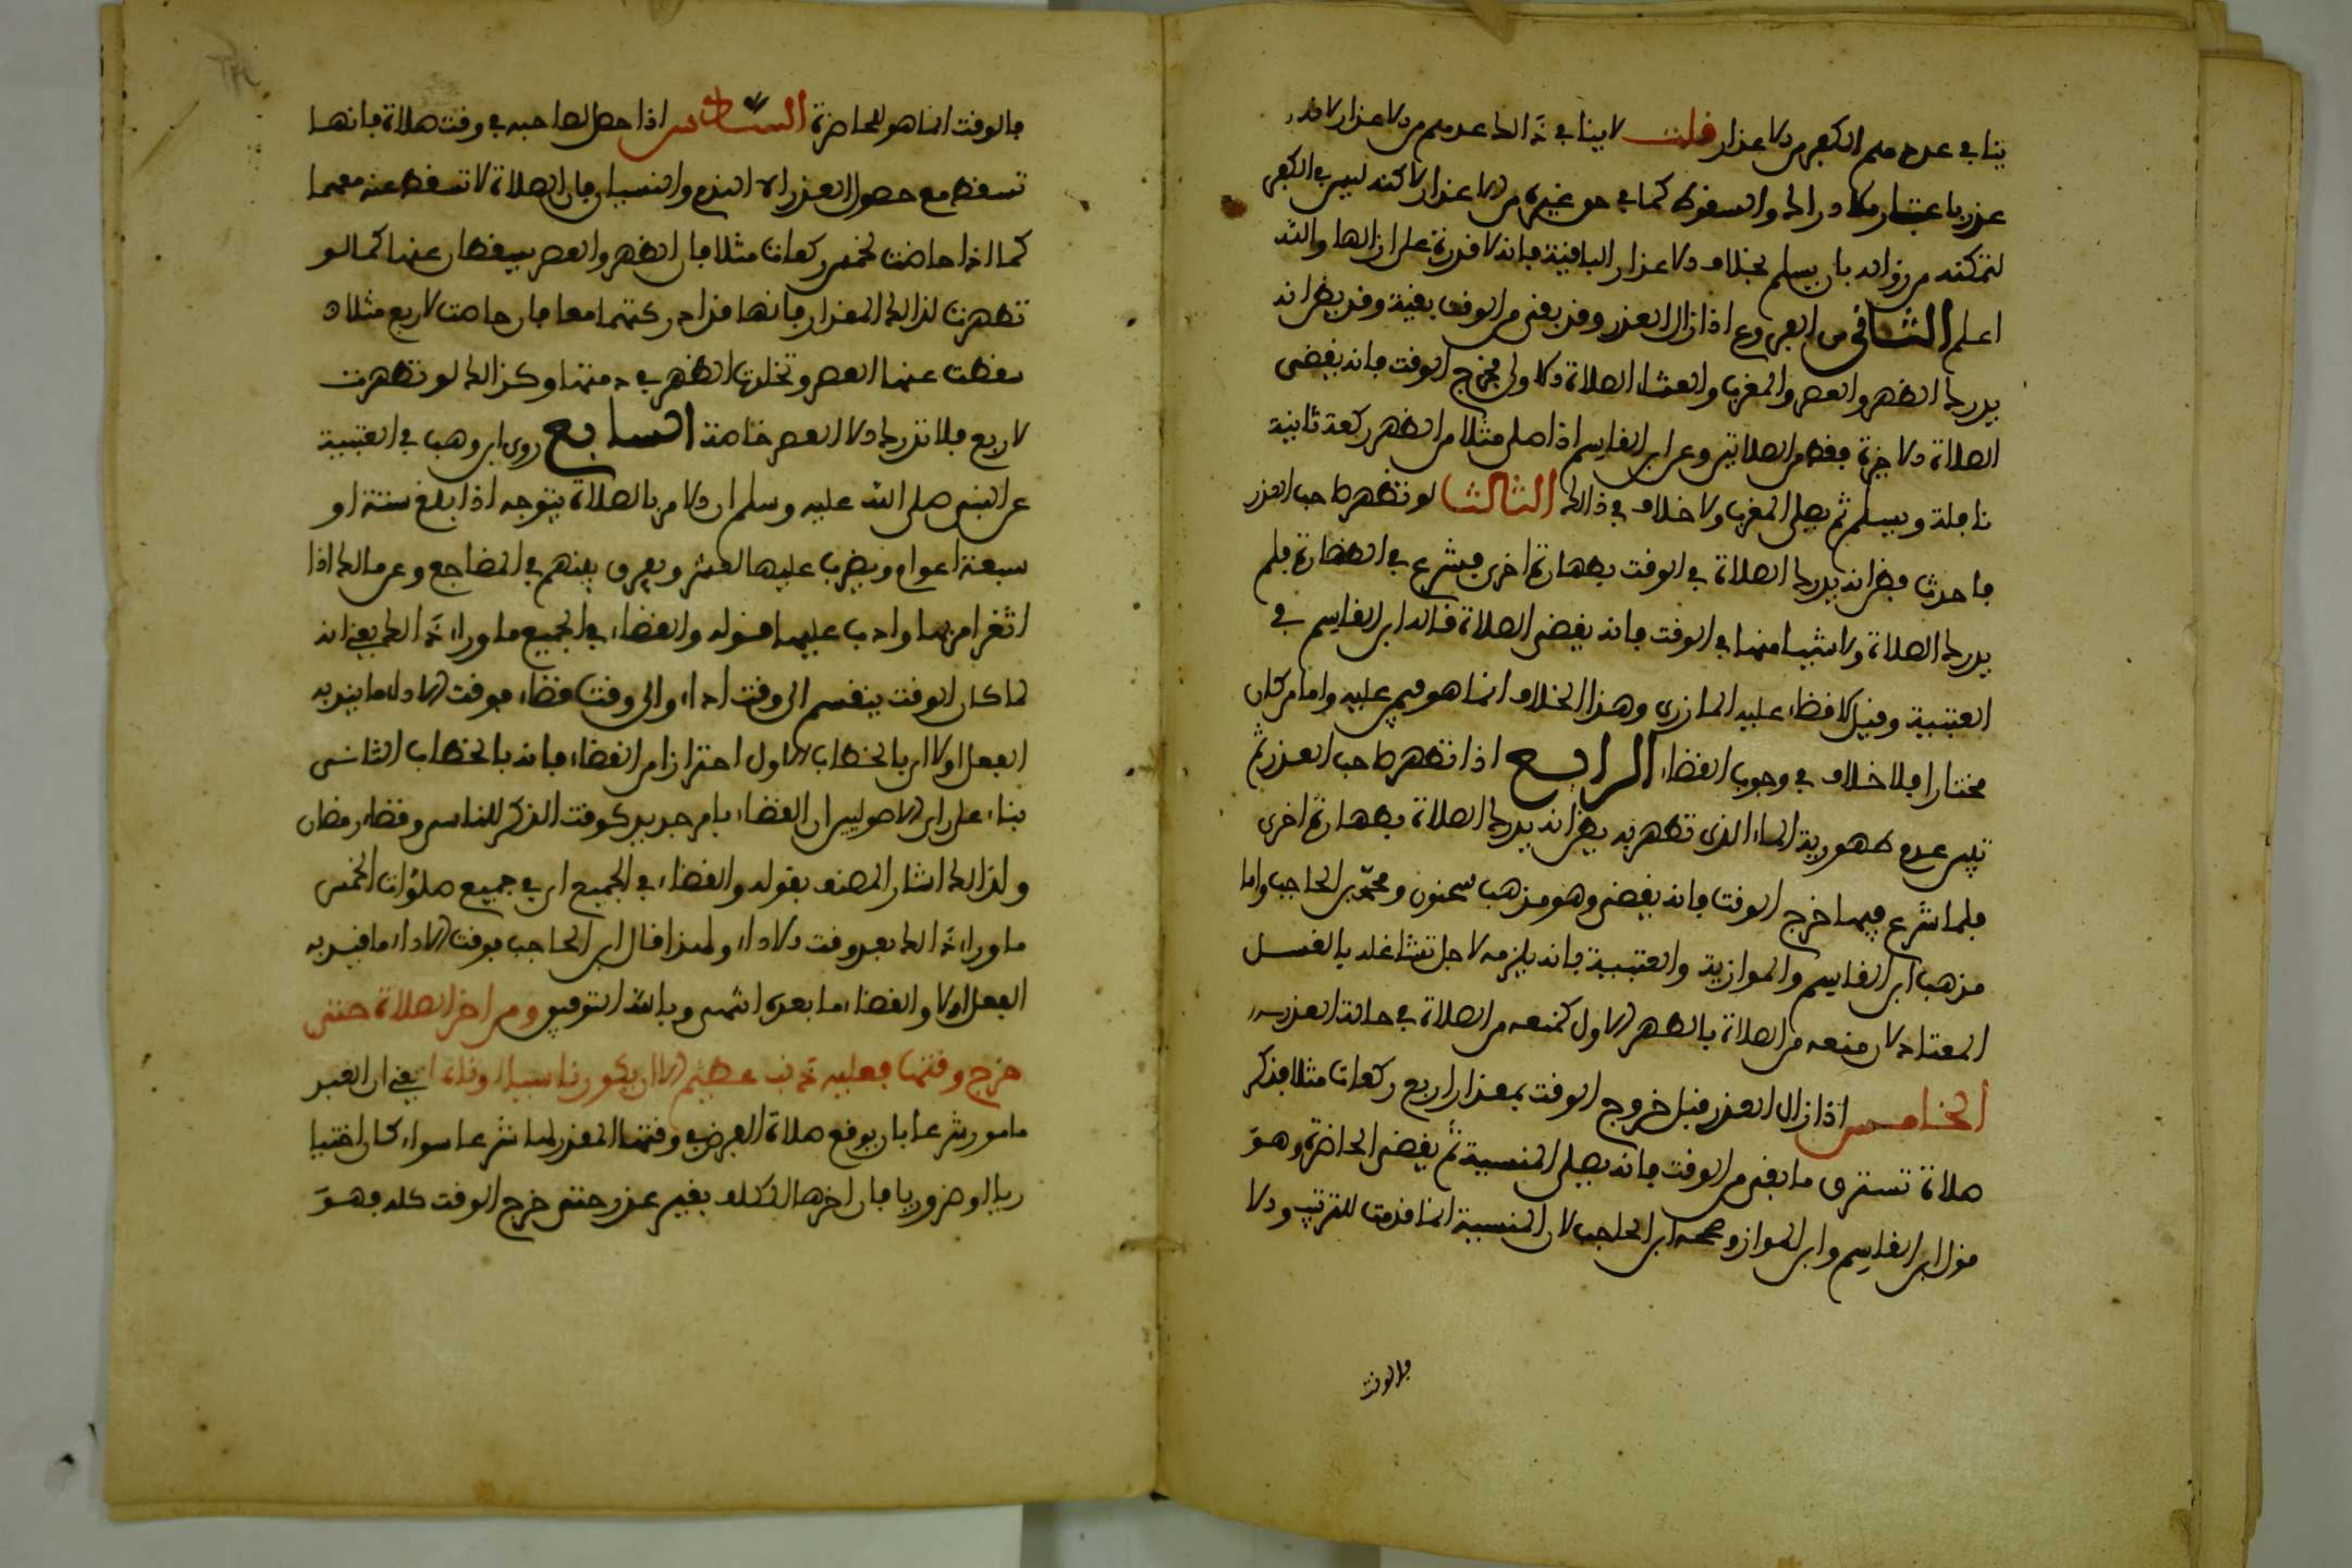 ينافي عدهم الكفر من الاعذار قلت لا ينافي ذالك عدهم من الاعذار لانه
عذر باعتبار الادراك والسقوط كما في حق غيره من الاعذار لاكنه ليس في الكفر
لتمكنه من زواله بان يسلم بخلاف الاعذار الباقية فانه لا قدرة على ازالتها والله
اعلم الثاني من الفروع اذا زال العذر وقد بقي من الوقت بقية وقد يظن انه
يدرك الظهر والعصر والمغرب والعشاء الصلاة الاولى فخرج الوقت فانه يقضي
الصلاة الاخيرة فقط من الصلاتين وعن ابن القاسم اذا صلى مثلا من الظهر ركعة ثانية
نافلة ويسلم ثم يصلي المغرب ولا خلاف في ذالك الثالث لو تطهر صاحب العذر
فاحدث فظن انه يدرك الصلاة في الوقت بطهارة اخرى فشرع في الطهارة فلم
يدرك الصلاة ولا شيئا منها في الوقت فانه يقضي الصلاة قاله ابن القاسم في
العتبية وقيل لا قضاء عليه المازري وهذا الخلاف انما هو فيمن غلبه واما من كان
مختارا فلا خلاف في وجوب القضاء الرابع اذا تطهر صاحب العذر ثم
تبين عدم طهورية الماء الذي تطهر به يظن انه يدرك الصلاة بطهارة اخرى
فلما شرع فيها خرج الوقت فانه يقضي وهو مذهب سحنون ومحمد بن الحاجب واما
مذهب ابن القاسم والموازية والعتبية فانه يلزمه لاجل تشاغله بالغسل
المعتاد لان منعه من الصلاة بالطهر الاول كمنعه من الصلاة في حالة العذر
الخامس اذا زال العذر قبل خروج الوقت بمقدار اربع ركعات مثلا فذكر
صلاة تستغرق ما بقي من الوقت فانه يصلي المنسية ثم يقضي الحاضرة وهو
قول ابن القاسم وابن المواز وصححه ابن الحاجب لان المنسية انما قدمت للترتيب والا
فالوقت
فالوقت انما هو للحاضرة السادس اذا حصل لصاحبه في وقت صلاة فانها
تسقط مع حصول العذر الا النوم والنسيان فان الصلاة لا تسقط عنه معهما
كما اذا حاضت لخمس ركعات مثلا فان الظهر والعصر يسقطان عنها كما لو
تطهرت لذالك المقدار فانها قد ادركتهما معا فان حاضت لاربع مثلا
سقطت عنها العصر وتخلدت الظهر في ذمتها وكذالك لو تطهرت
لاربع فلا تدرك الا العصر خاصة السابع روى ابن وهب في العتبية
عن النبي صلى الله عليه وسلم ان الامر بالصلاة يتوجه اذا بلغ ستة او
سبعة اعوام ويضرب عليها لعشر ويفرق بينهم في المضاجع وعن مالك اذا
اثغر امر بها وادب عليها قوله والقضاء في الجميع ما وراء ذالك يعني انه
لما كان الوقت ينقسم الى وقت اداء والى وقت قضاء فوقت الاداء ما ينوي به
الفعل اولا اي بالخطاب الاول احترازا من القضاء فانه بالخطاب الثاني
بناء على راي الاصوليين ان القضاء بامر جديد كوقت الذكر للناسي وقضاء رمضان
ولذالك اشار المصنف بقوله والقضاء في الجميع اي في جميع صلوات الخمس
ما وراء ذالك بعد وقت الاداء ولهذا قال ابن الحاجب فوقت الاداء ما قيد به
الفعل اولا والقضاء ما بعده انتهى وبالله التوفيق ومن اخر الصلاة حتى
خرج وقتها فعليه ذنب عظيم الا ان يكون ناسيا او نائما يعني ان العبد
مامور شرعا بان يوقع صلاة الفرض في وقتها المقدر لها شرعا سواء كان اختيا
ريا او ضروريا فان اخرها المكلف بغير عذر حتى خرج الوقت كله فهو